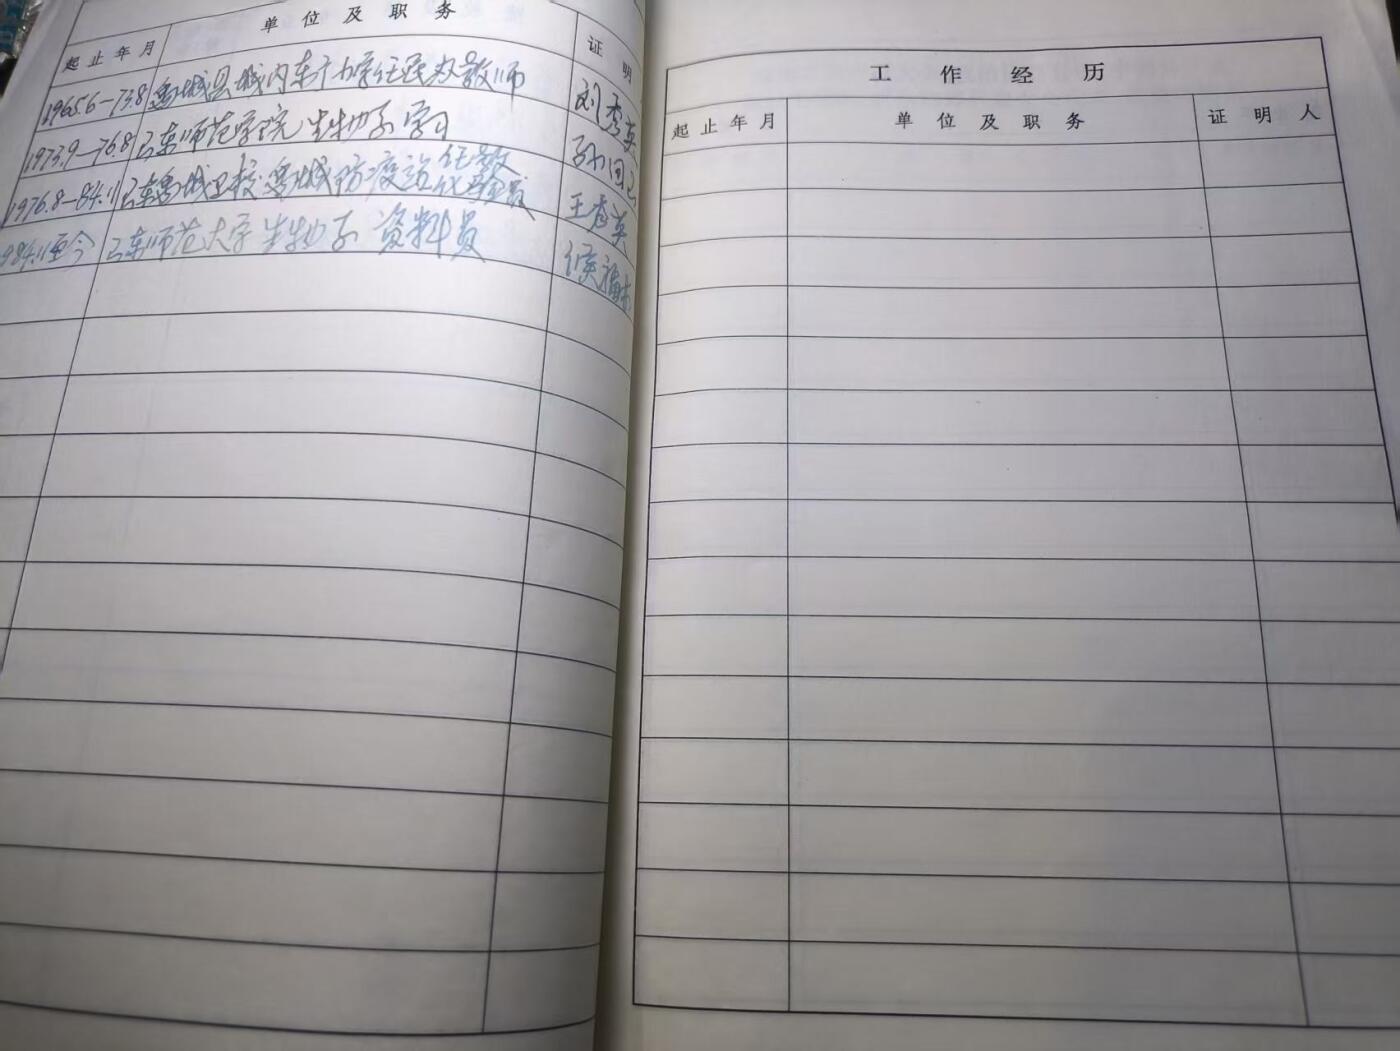 起止年月 单位及职务 证明
1965.6—73.8 禹城县城内小学任民办教师 刘秀英
1973.9—76.8 山东师范学院生物系学习
1976.8—84.11 山东禹城卫校禹城防疫站任教化验员 王秀英
984.11至今 山东师范大学生物系资料员 候福
工作经历
起止年月 单位及职务 证明人